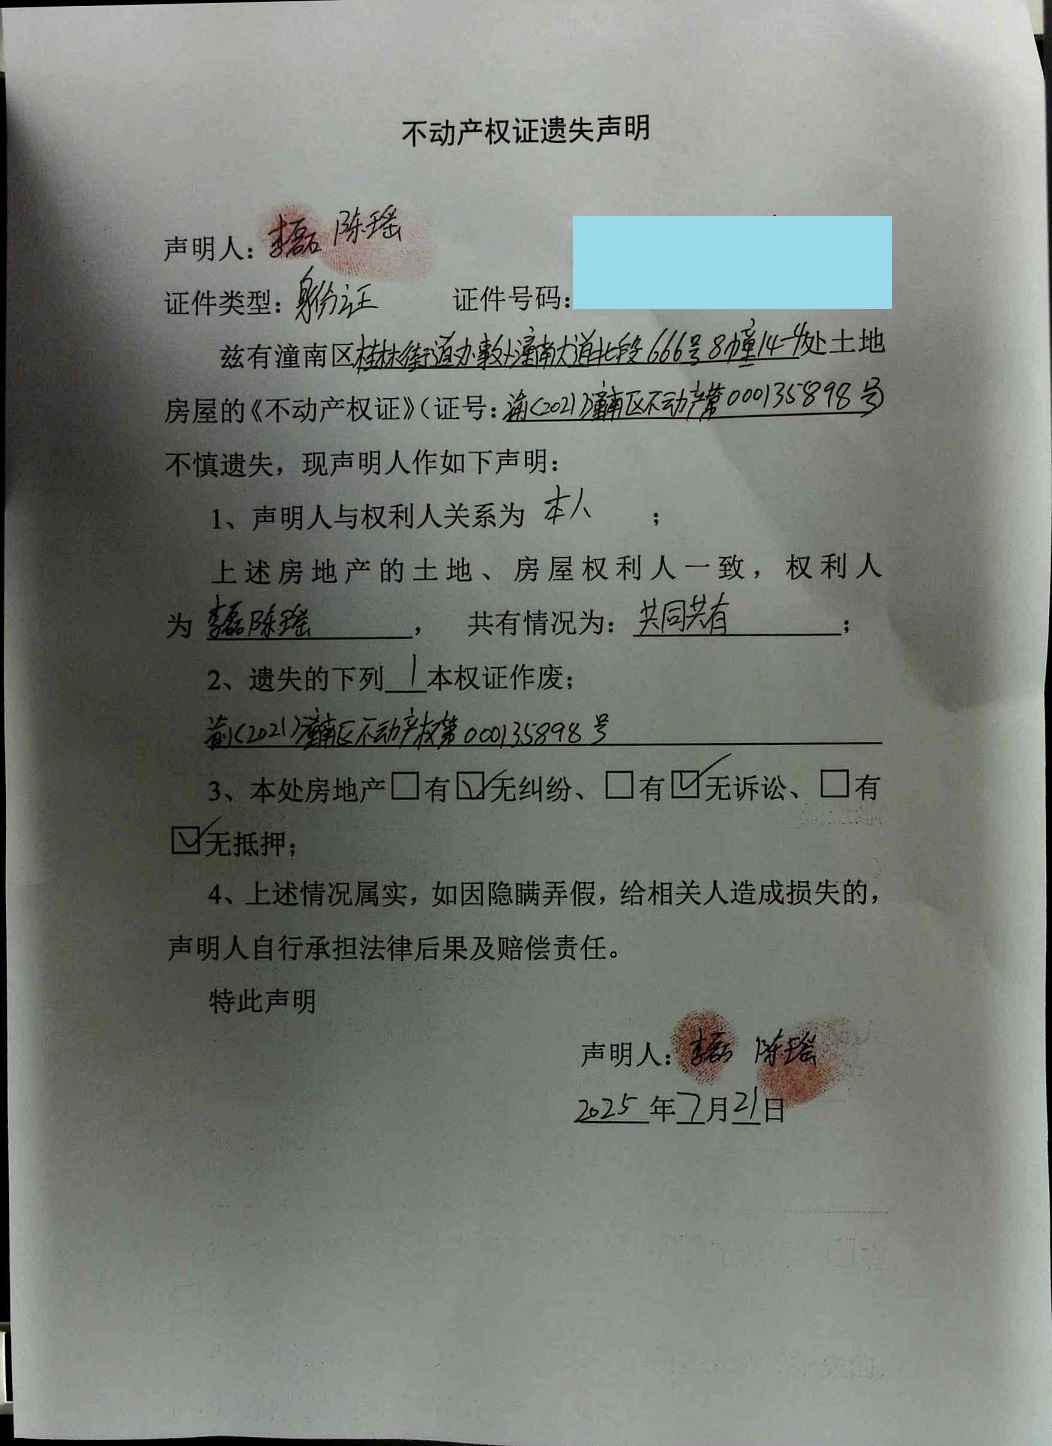 不动产权证遗失声明
声明人：李磊 陈瑶
证件类型：身份证 证件号码：
兹有潼南区桂林街道办事处潼南大道北段666号8幢14-4处土地
房屋的《不动产权证》（证号：渝(2021)潼南区不动产第000135898号）
不慎遗失，现声明人作如下声明：
1、声明人与权利人关系为 本人 ；
上述房地产的土地、房屋权利人一致，权利人
为 李磊 陈瑶 ， 共有情况为：共同共有 ；
2、遗失的下列 1 本权证作废；
渝(2021)潼南区不动产权第000135898号
3、本处房地产□有☑无纠纷、□有☑无诉讼、□有
☑无抵押；
4、上述情况属实，如因隐瞒弄假，给相关人造成损失的，
声明人自行承担法律后果及赔偿责任。
特此声明
声明人：李磊 陈瑶
2025年7月21日